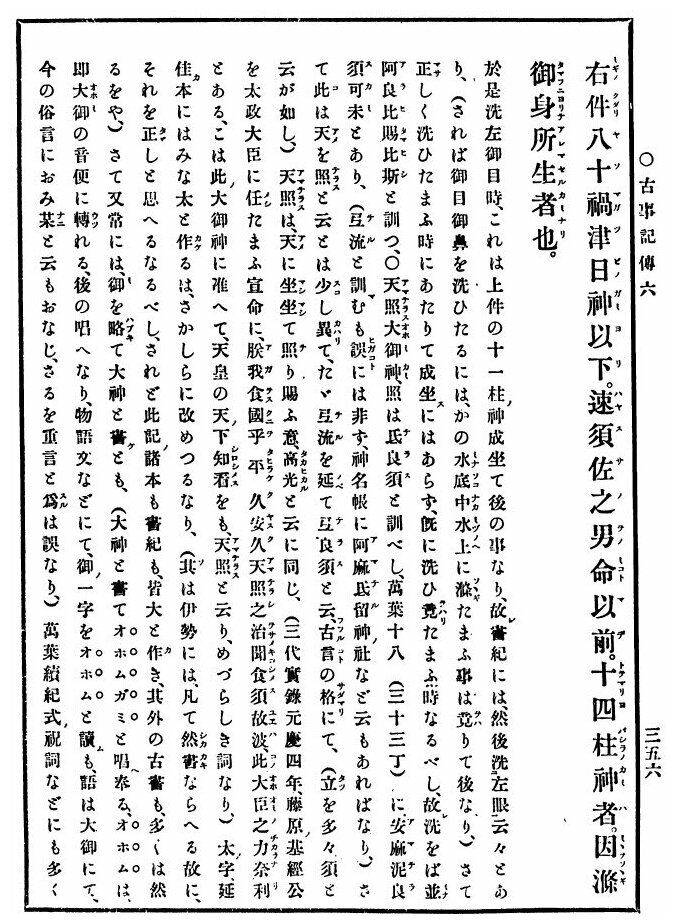 〇古事記傳六
三五六
右件八十禍津日神以下。速須佐之男命以前。十四柱神者。因滌
御身所生者也。
於是洗左御目時、これは上件の十一柱神成坐て後の事なり、故書紀には、然後洗左眼云々とあ
り、（されば御目御鼻を洗ひたるには、かの水底中水上に滌たまふ事は竟りて後なり、）さて
正しく洗ひたまふ時にあたりて成坐にはあらず、既に洗ひ竟たまふ時なるべし、故洗をば並
阿良比賜比斯と訓つ、〇天照大御神、照は氐良須と訓べし、萬葉十八（三十三丁）に安麻泥良
須可未とあり、（弖流と訓むも誤には非ず、神名帳に阿麻氐留神社など云もあればなり、）さ
て此は天を照と云とは少し異て、たゞ弖流を延て弖良須と云、古言の格にて、（立を多々須と
云が如し、）天照は、天に坐坐て照り賜ふ意、高光と云に同じ、（三代實錄元慶四年、藤原基經公
を太政大臣に任たまふ宣命に、朕我食國乎平久安久天照之治聞食須故波、此大臣之力奈利
とある、こは此大御神に准へて、天皇の天下知看をも、天照と云り、めづらしき詞なり、）太字、延
佳本にはみな太と作るは、さかしらに改めつるなり、（其は伊勢には、凡て然書ならへる故に、
それを正しと思へるなるべし、されど此記諸本も書紀も、皆大と作き、其外の古書も、多くは然
るをや、）さて又常には、御を略て大神と書とも、（大神と書てオホムガミと唱奉る、オホムは、
即大御の音便に轉れる、後の唱へなり、物語文などにて、御一字をオホムと讀も、語は大御にて、
今の俗言におみ某と云もおなじ、さるを重言と爲は誤なり、）萬葉續紀式祝詞などにも多く